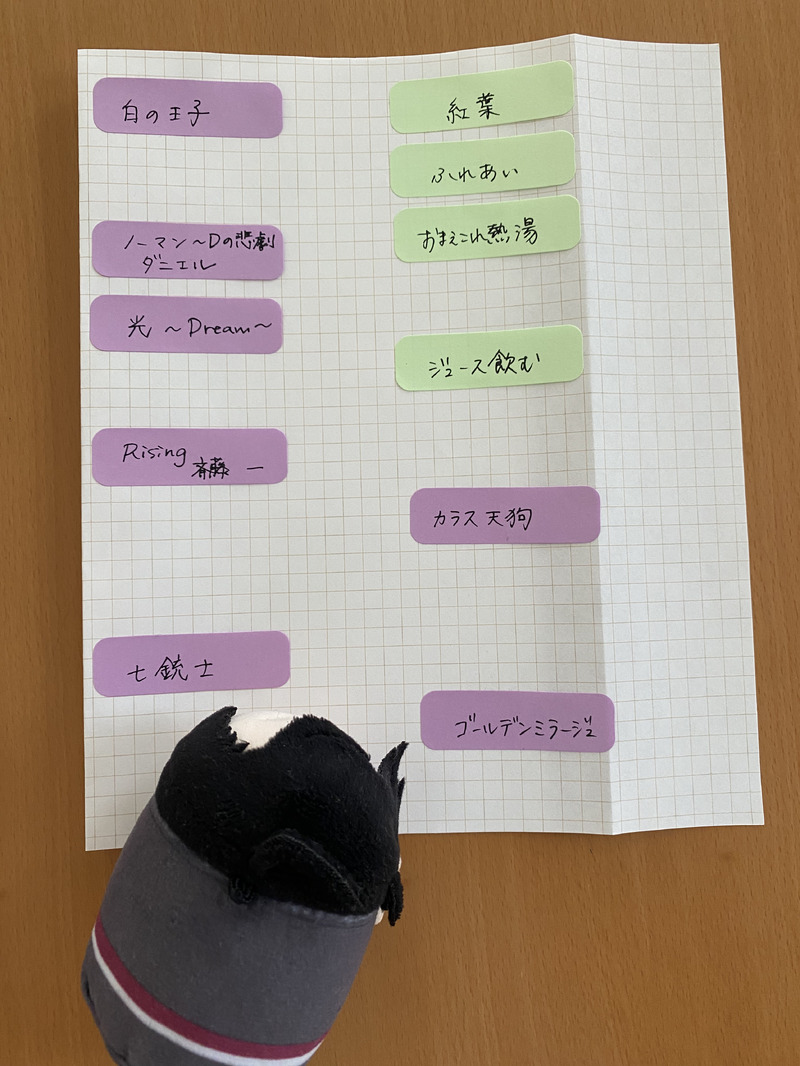 白の王子
ノーマン～Dの悲劇
ダニエル
光 ～Dream～
Rising
斎藤 一
七銃士
紅葉
ふれあい
おまえこれ熱湯
ジュース飲む
カラス天狗
ゴールデンミラージュ